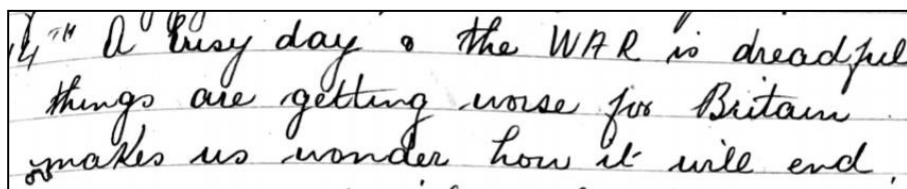 14TH A busy day & the WAR is dreadful
things are getting worse for Britain
makes us wonder how it will end.